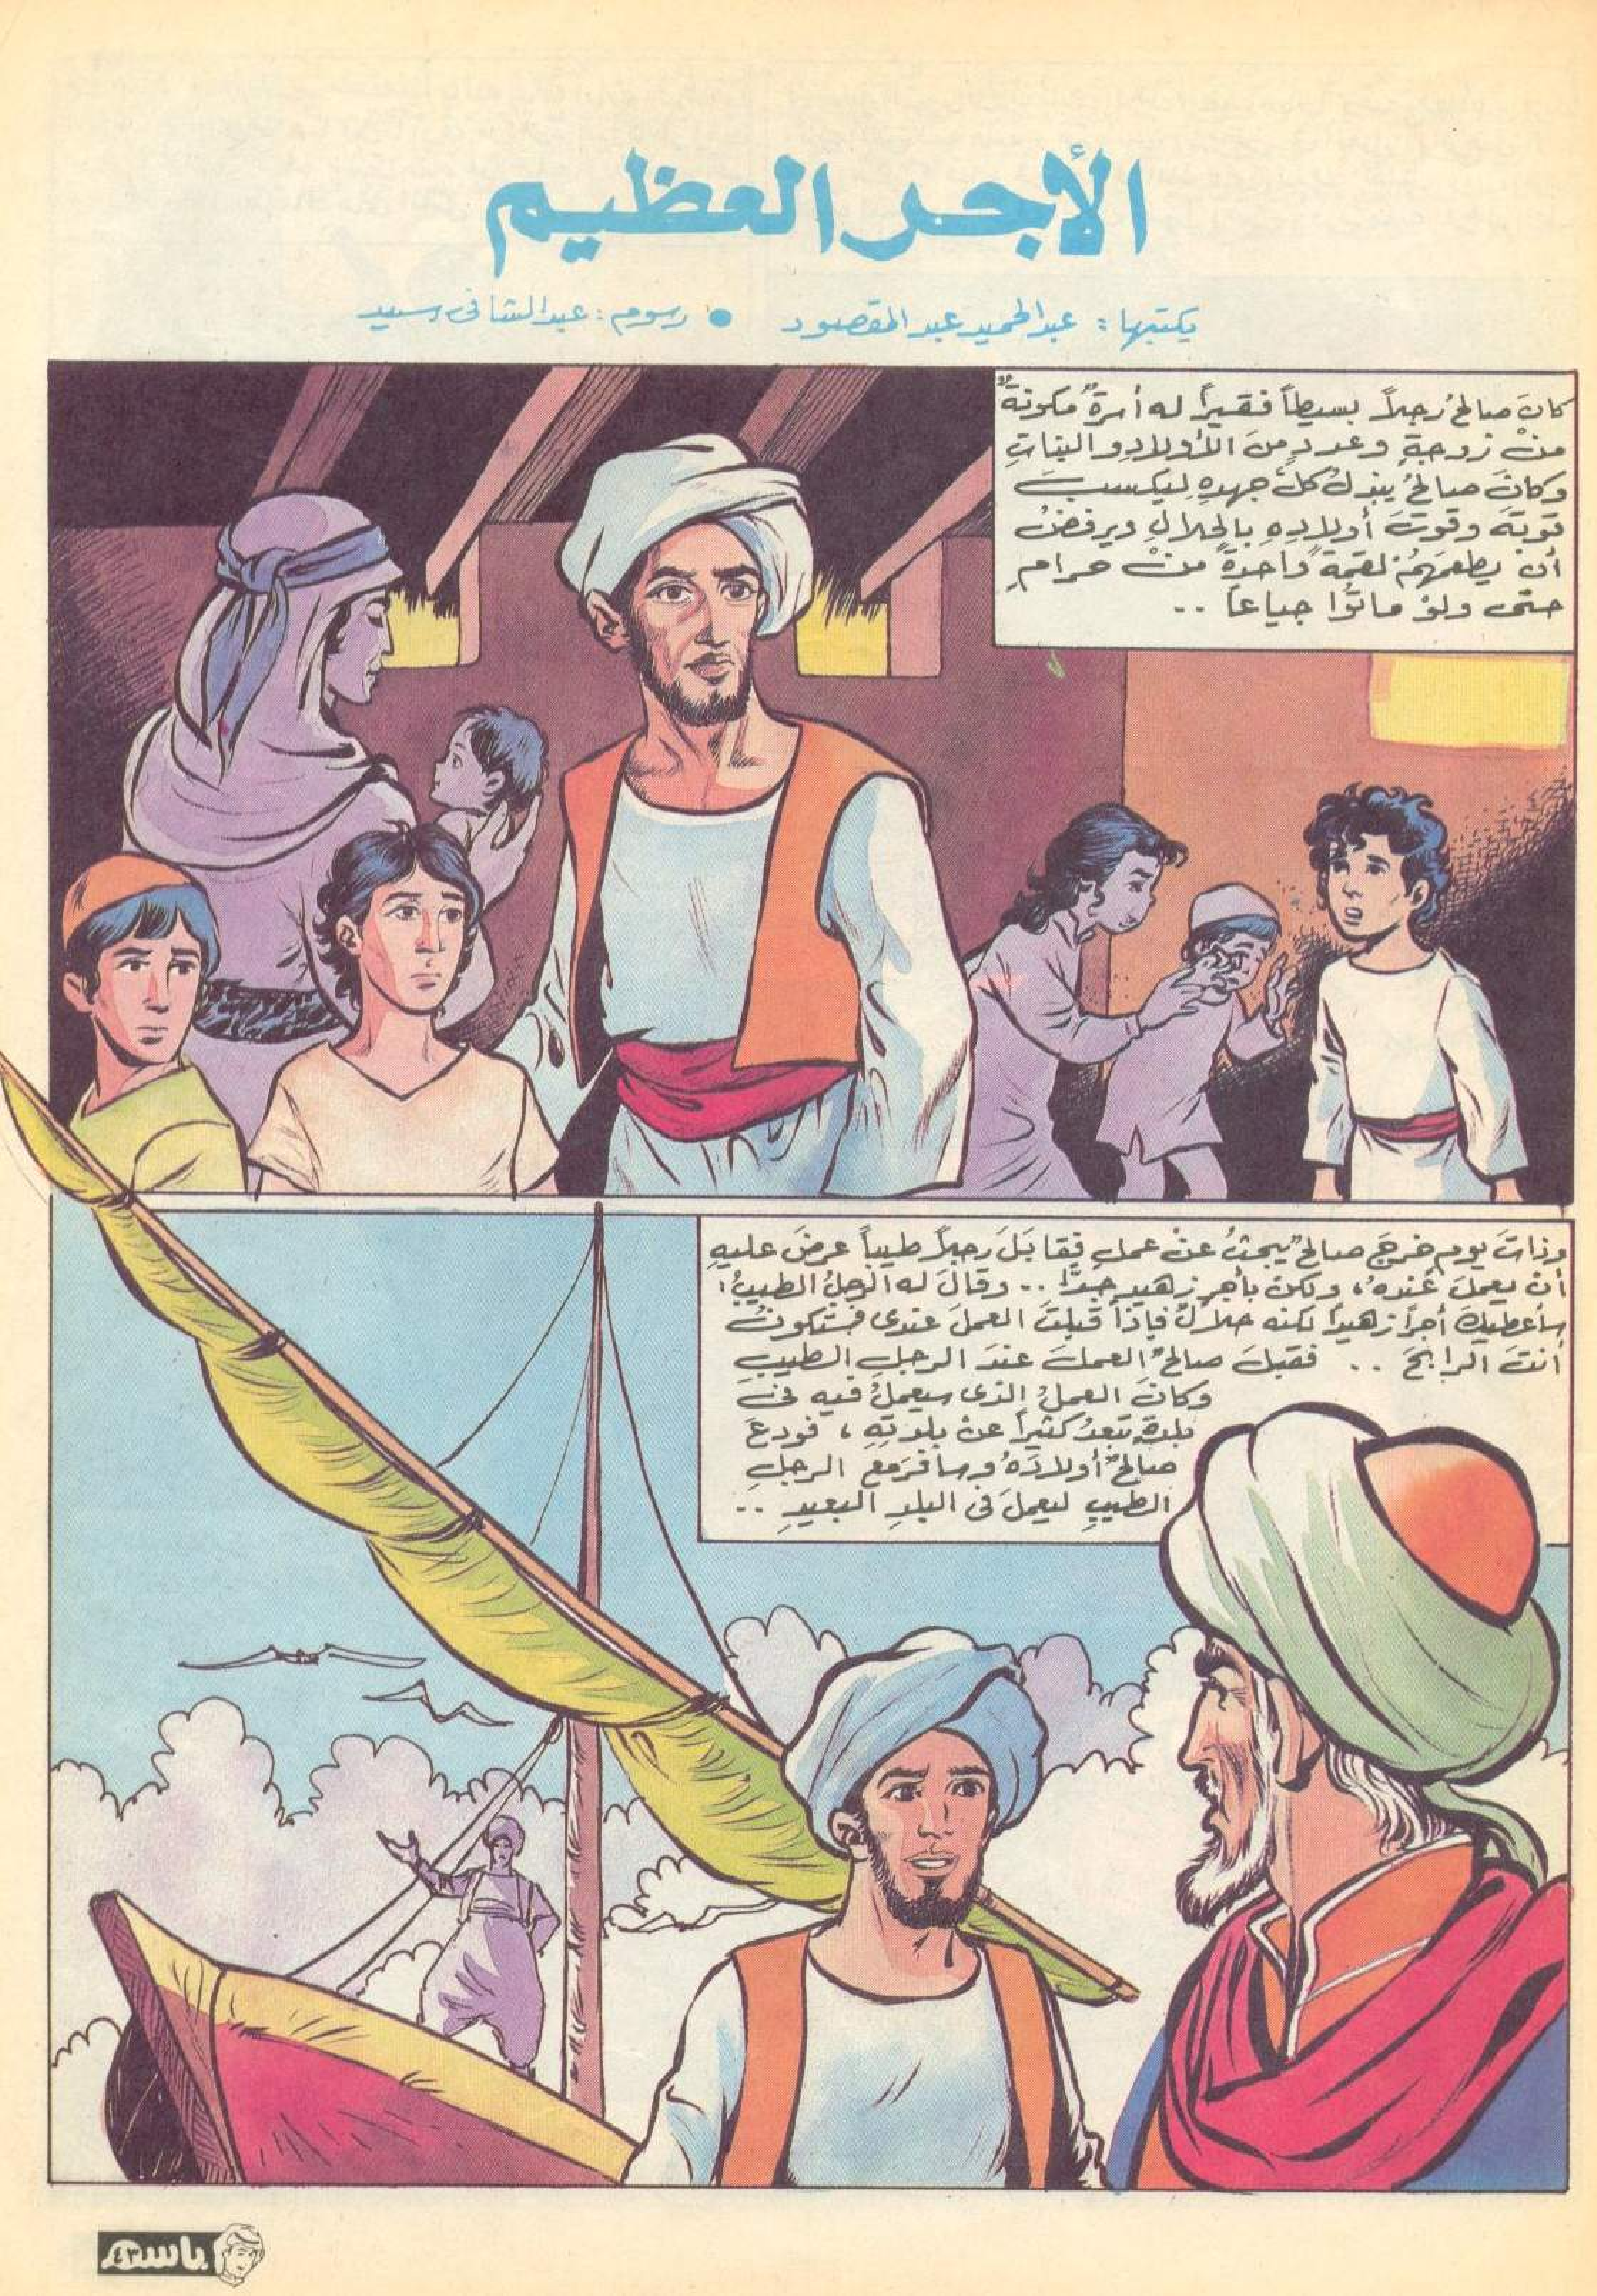 الأجر العظيم
يكتبها : عبد الحميد عبد المقصود • رسوم : عبد الشافى سيد
كانَ صالحٌ رجلاً بسيطاً فقيراً له أسرةٌ مكونةٌ
منْ زوجةٍ وعددٍ منَ الأولادِ والبناتِ
وكانَ صالحٌ يبذلُ كلَّ جهدِهِ ليكسبَ
قوتَهُ وقوتَ أولادِهِ بالحلالِ ويرفضُ
أن يطعمَهُمْ لقمةً واحدةً منْ حرامٍ
حتى ولوْ ماتُوا جياعاً ..
وذاتَ يومٍ خرجَ صالحٌ يبحثُ عنْ عملٍ فقابَلَ رجلاً طيباً عرضَ عليهِ
أن يعملَ عندهُ، ولكن بأجرٍ زهيدٍ جدًّا .. وقالَ له الرجلُ الطيبُ :
سأعطيكَ أجراً زهيداً لكنه حلالٌ فإذا قبلتَ العملَ عندى فستكونُ
أنتَ الرابحَ .. فقبلَ صالحٌ العملَ عندَ الرجلِ الطيبِ
وكانَ العملُ الذى سيعملُ فيه فى
بلدةٍ تبعدُ كثيراً عنْ بلدتِهِ ، فودعَ
صالحٌ أولادَهُ وسافرَ مع الرجلِ
الطيبِ ليعملَ فى البلدِ البعيدِ ..
باسم
٤٣